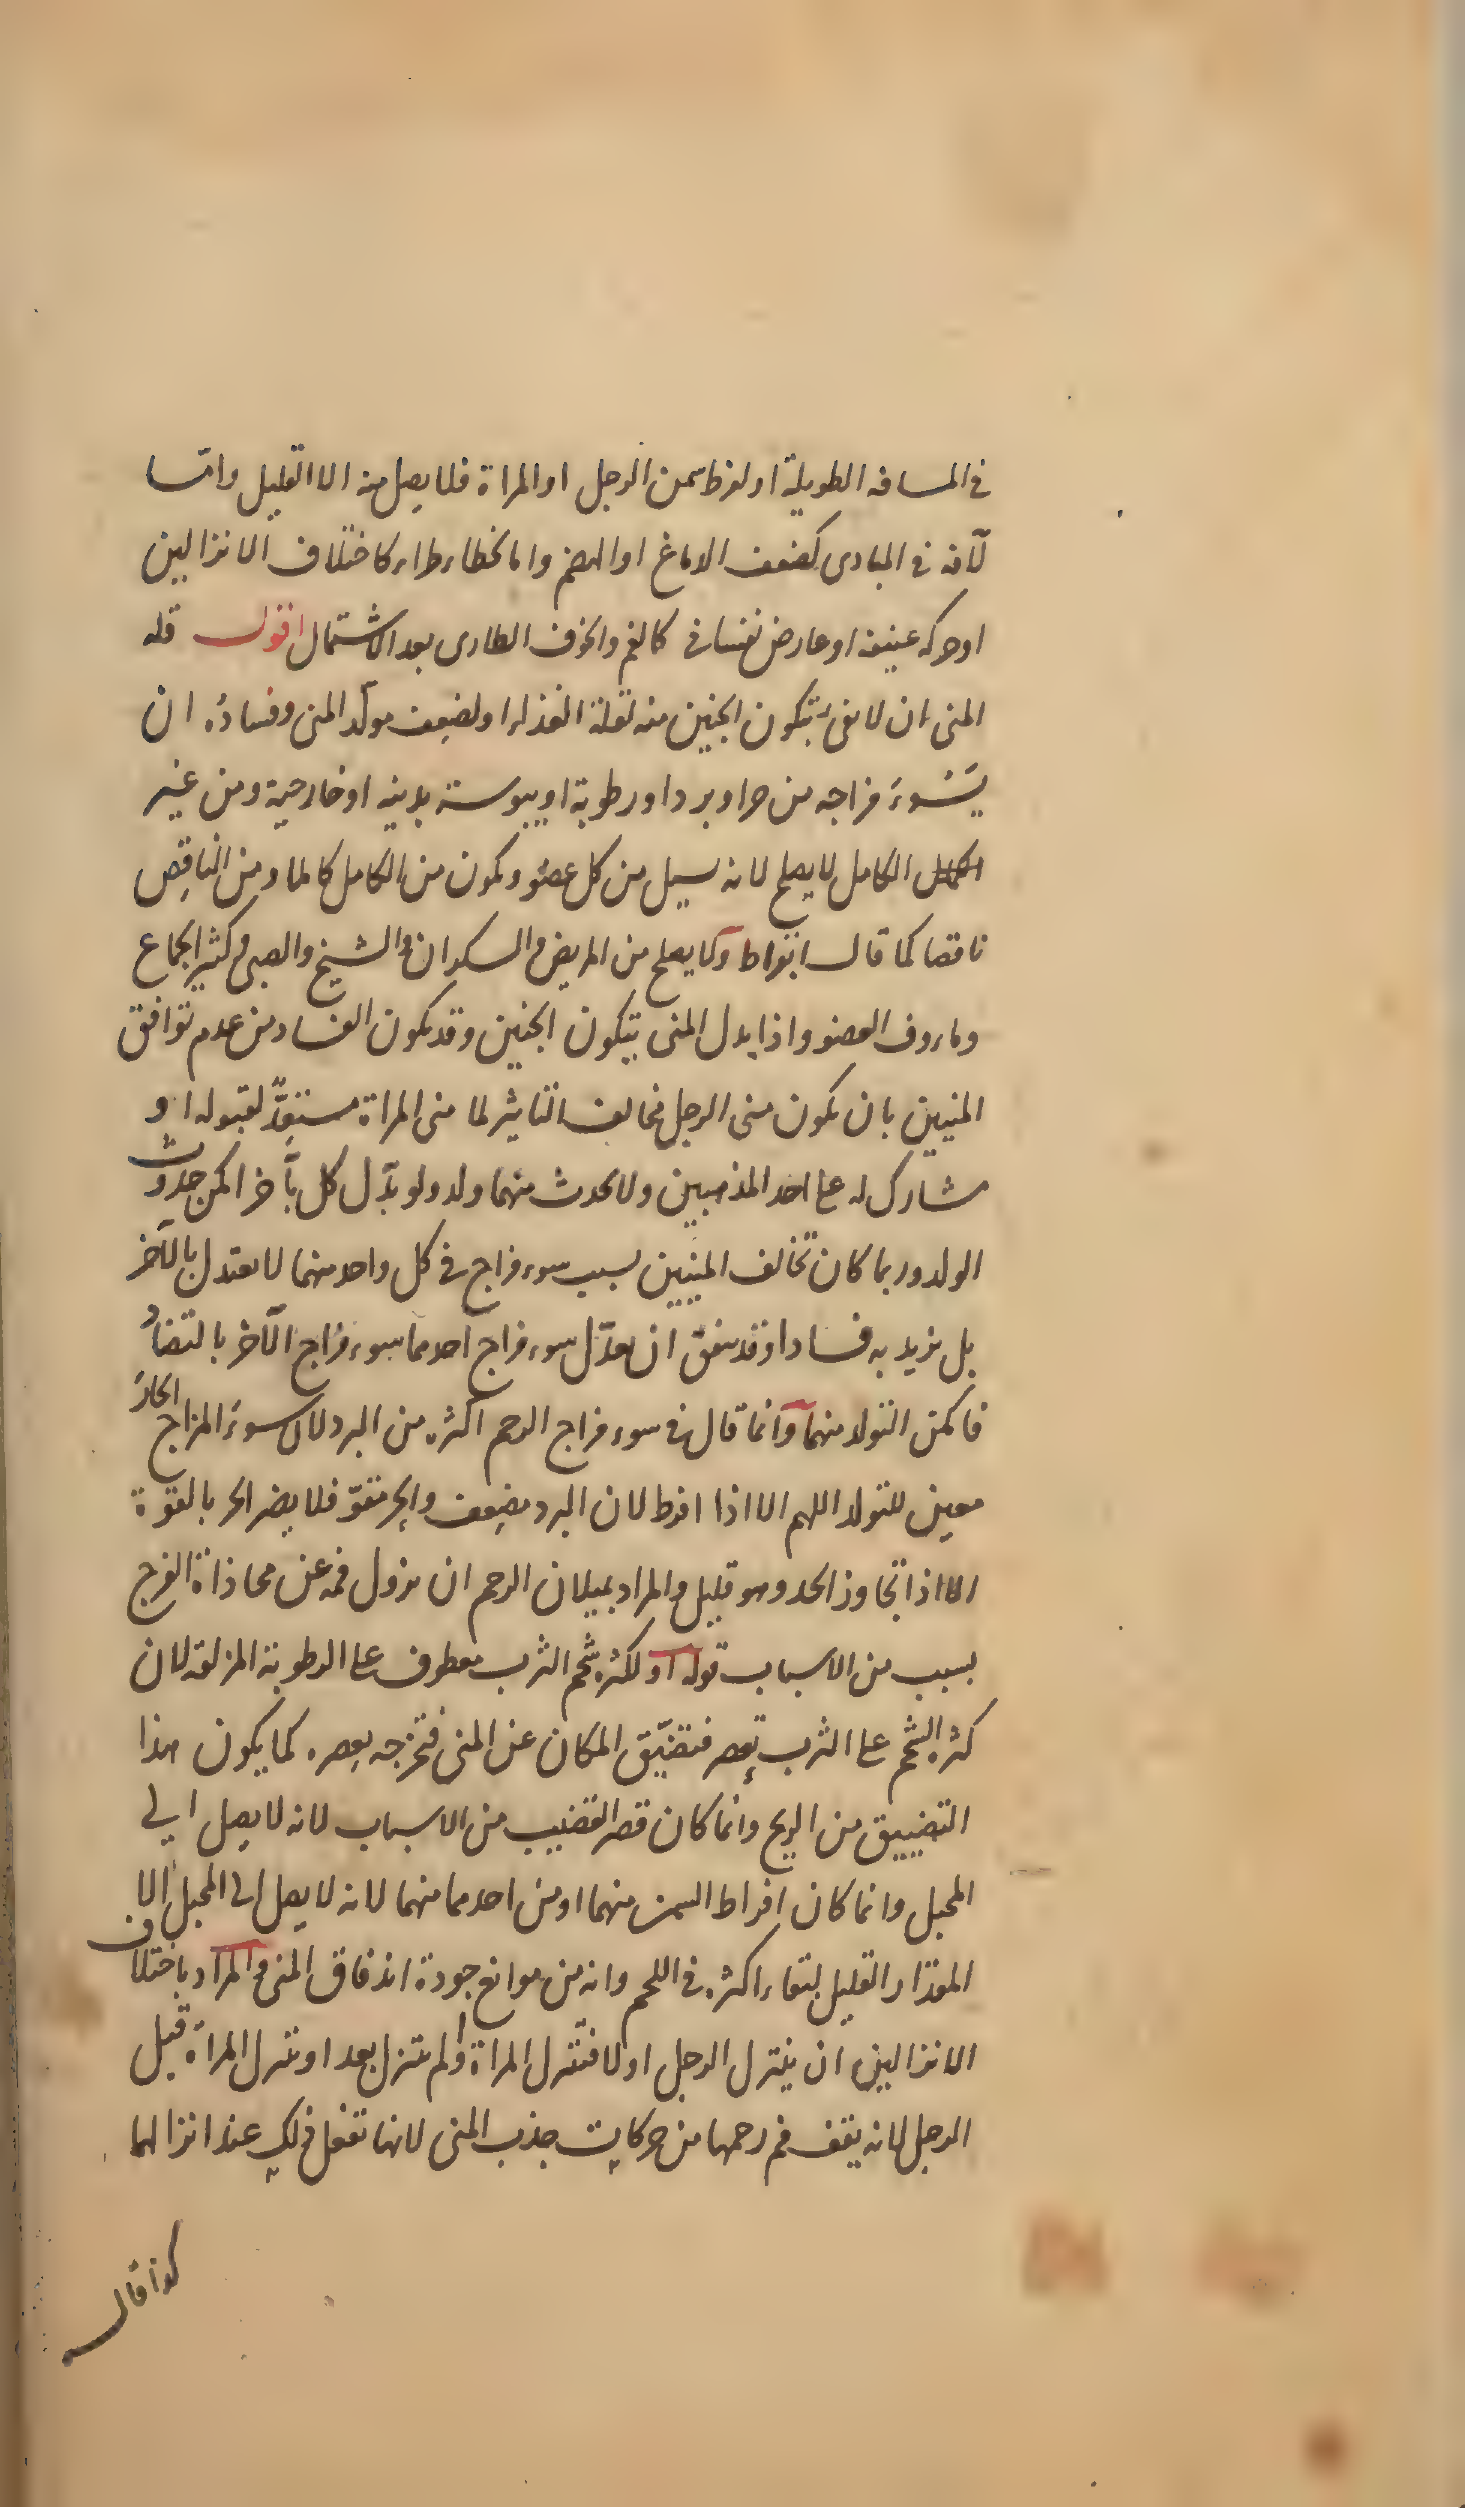 في المسافة الطويلة او لفرط سمن الرجل او المراة فلا يصل منه الا القليل واما
لآفة في المبادى كضعف الدماغ او الهضم واما لخطاء طار كاختلاف الانزالين
او حركة عنيفة او عارض نفسانى كالغم والخوف الطارى بعد الاشتمال اقول قلة
المنى ان لا يفى بتكون الجنين منه لقلة الغذاء او لضعف مولد المنى وفساده ان
يسوء مزاجه من حر او برد او رطوبة او يبوسة بدنية او خارجية ومن غير
الكامل لا يصلح لانه يسيل من كل عضو ويكون من الكامل كاملا ومن الناقص
ناقصا كما قال ابقراط ولا يصلح من المريض والسكران والشيخ والصبى وكثير الجماع
وماروف العضو واذا بدل المنى يتكون الجنين وقد يكون الفساد من عدم توافق
المنيين بان يكون منى الرجل مخالف التاثير لما منى المراة مستعد لقبوله او
مشارك له على احد المذهبين ولا يحدث منهما ولد ولو بدل كل بآخر امكن حدوث
الولد وربما كان تخالف المنيين لسبب سوء مزاج في كل واحد منهما لا يعتدل بالآخر
بل يزيد به فسادا وقد يتفق ان يعدل سوء مزاج احدهما سوء مزاج الآخر بالتضاد
فامكن التولد منهما وانما قال في سوء مزاج الرحم اكثره من البرد لان سوء المزاج الحار
معين للتولد اللهم الا اذا افرط لان البرد مضعف والحر مقو فلا يضر الحر بالقوة
الا اذا تجاوز الحد وهو قليل والمراد بميلان الرحم ان يزول فمه عن محاذاة الفرج
بسبب من الاسباب قوله او لكثرة شحم الثرب معطوف على الرطوبة المزلقة لان
كثرة الشحم على الثرب تعصر فتضيق المكان عن المنى فتخرجه بعصره كما يكون هذا
التضييق من الريح وانما كان قصر القضيب من الاسباب لانه لا يصل الى
المحبل وانما كان افراط السمن منهما او من احدهما منهما لانه لا يصل الى المحبل الا
المقدار القليل لبقاء اكثره في اللحم وانه من موانع جودة اندفاق المنى والمراد باختلاف
الانزالين ان ينزل الرجل اولا فتترك المراة ولم تنزل بعد او تنزل المراة قبل
الرجل لانه يقف فم رحمها من حركات جذب المنى لانها تفعل ذلك عند انزالها
كذا قال